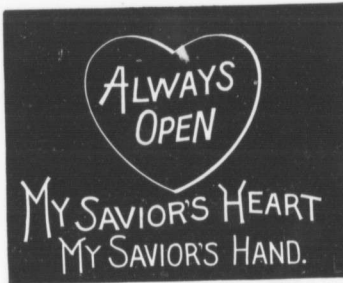 ALWAYS
OPEN
MY SAVIOR'S HEART
MY SAVIOR'S HAND.